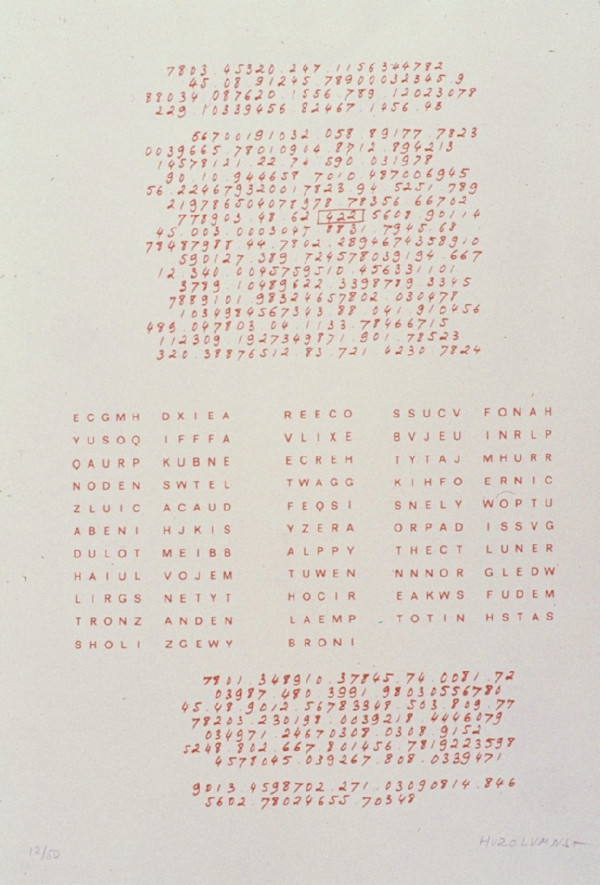 7803.45320.247.1156344782
45.08.91245.78900032345.9
88034.087620.1556.789.12023078
229.10339456.82467.1456.43
66700191032.058.89177.7823
0039665.78010904.8712.894213
14578121.22.74.590.031978
90.10.944658.7010.487006945
56.224679320017823.94.5251.789
219786504078978.78356.66702
778903.48.62.422.5608.90114
45.003.0003047.8831.7945.68
78487988.44.7802.2894674358910
590127.389.724578039194.667
12.340.0045759510.456331101
3789.10489622.3398789.3345
7889101.98324657802.030478
1034984567343.88.041.910456
489.047803.04.1133.78466715
112309.1927349871.901.78523
320.38876512.83.721.4230.7824
ECGMH DXIEA REECO SSUCV FONAH
YUSOQ IFFFA VLIXE BVJEU INRLP
QAURP KUBNE ECREH TYTAJ MHURR
NODEN SWTEL TWAGG KIHFO ERNIC
ZLUIC ACAUD FEQSI SNELY WOPTU
ABENI HJKIS YZERA ORPAD ISSVG
DULOT MEIBB ALPPY THECT LUNER
HAIUL VOJEM TUWEN NNNOR GLEDW
LIRGS NETYT HOCIR EAKWS FUDEM
TRONZ ANDEN LAEMP TOTIN HSTAS
SHOLI ZGEWY BRONI
7801.348910.37845.74.0081.72
03987.480.3991.98030556780
45.48.9012.56783348.503.809.77
78203.230198.0039218.4446079
034971.24670308.0308.9152
5248.802.667.801456.7819223598
4578045.039267.808.0339471
9013.4598702.271.03090814.846
5602.78024655.70348
12/50